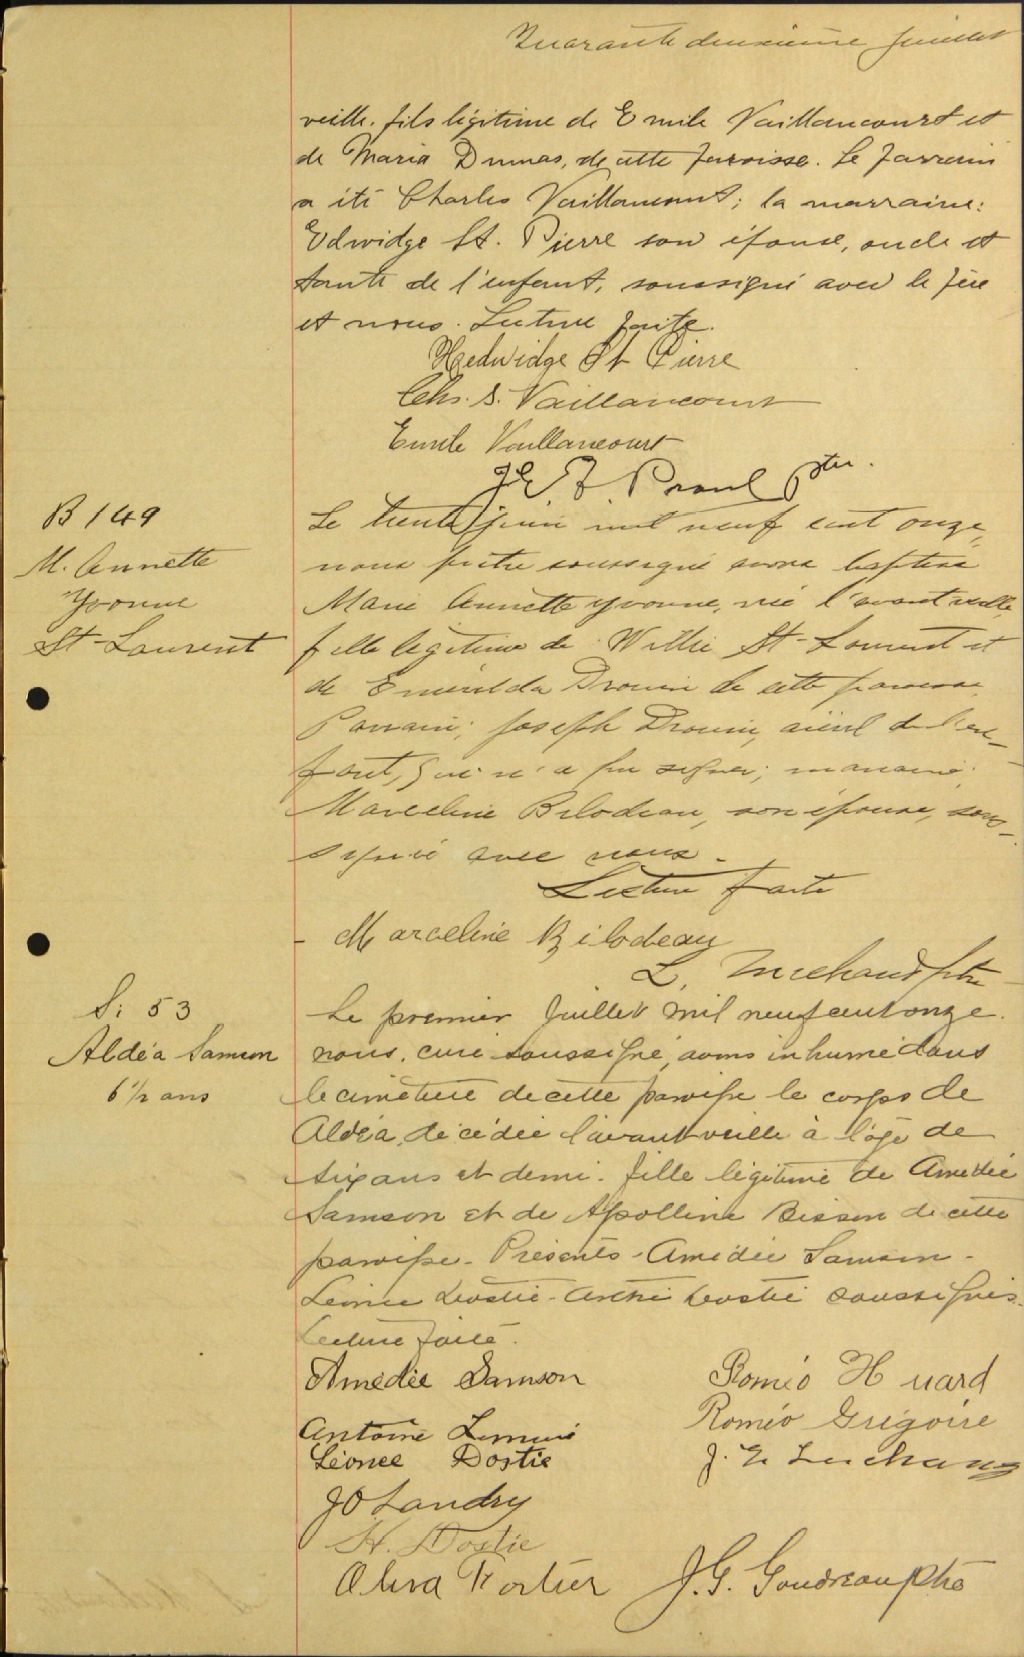 Quarante deuxième feuillet
veille. fils légitime de Emile Vaillancourt et
de Maria Dumas, de cette paroisse. Le parrain
a été Charles Vaillancourt; la marraine:
Edwidge St. Pierre son épouse, oncle et
tante de l'enfant, soussigné avec le père
et nous. Lecture faite.
Hedwidge St Pierre
Chs. S. Vaillancourt
Emile Vaillancourt
Ptre.
B 149
M. Annette
Yvonne
St-Laurent
Le trente juin mil neuf cent onze,
nous prêtre soussigné avons baptisé
Marie Annette Yvonne, née l'avant veille,
fille légitime de Willie St-Laurent et
de Emérilda Drouin de cette paroisse.
Parrain; Joseph Drouin, aïeul de l'en-
fant, qui n'a pu signer; marraine:
Marceline Bilodeau, son épouse, sous-
signée avec nous.
Lecture faite
Marceline Bilodeau
L. Michaud ptre
S. 53
Aldéa Samson
6 1/2 ans
Le premier Juillet mil neuf cent onze.
nous, curé soussigné, avons inhumé dans
le cimetière de cette paroisse le corps de
Aldéa, décédée l'avant veille à l'âge de
six ans et demi. fille légitime de Amédée
Samson et de Apolline Bisson de cette
paroisse. Présents. Amédée Samson -
Léonce Dostie - Dostie soussignés.
Lecture faite.
Amédée Samson
Roméo Huard
Antoine
Roméo Grégoire
Léonce Dostie
J. E.
J O Landry
H. Dostie
Oliva Fortier
J. G. Goudreau ptre